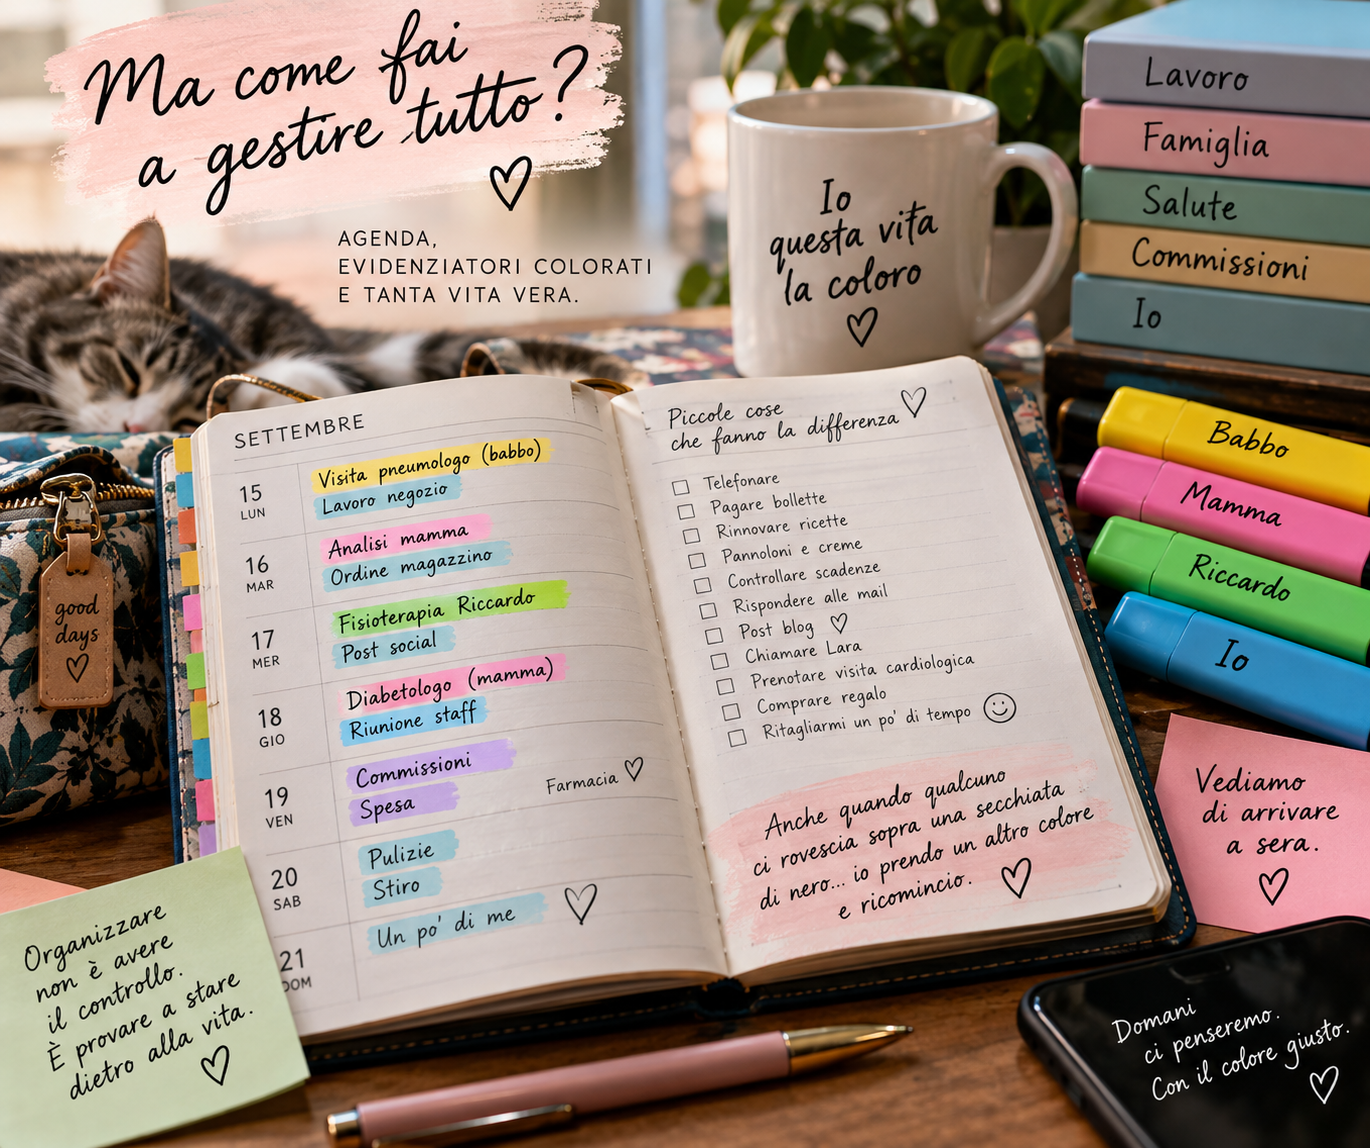 Ma come fai
a gestire tutto?
AGENDA,
EVIDENZIATORI COLORATI
E TANTA VITA VERA.
Io
questa vita
la coloro
Lavoro
Famiglia
Salute
Commissioni
Io
Babbo
Mamma
Riccardo
Io
good
days
SETTEMBRE
15
LUN
Visita pneumologo (babbo)
Lavoro negozio
16
MAR
Analisi mamma
Ordine magazzino
17
MER
Fisioterapia Riccardo
Post social
18
GIO
Diabetologo (mamma)
Riunione staff
19
VEN
Commissioni
Spesa
Farmacia
20
SAB
Pulizie
Stiro
21
DOM
Un po' di me
Piccole cose
che fanno la differenza
Telefonare
Pagare bollette
Rinnovare ricette
Pannoloni e creme
Controllare scadenze
Rispondere alle mail
Post blog
Chiamare Lara
Prenotare visita cardiologica
Comprare regalo
Ritagliarmi un po' di tempo
Anche quando qualcuno
ci rovescia sopra una secchiata
di nero... io prendo un altro colore
e ricomincio.
Vediamo
di arrivare
a sera.
Organizzare
non è avere
il controllo.
È provare a stare
dietro alla vita.
Domani
ci penseremo.
Con il colore giusto.